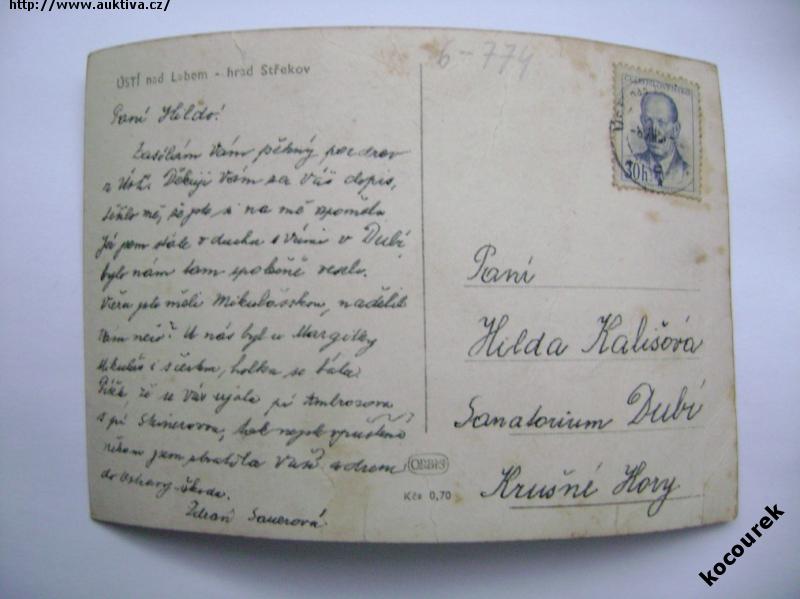 http://www.auktiva.cz/
6-774
ÚSTÍ nad Labem - hrad Střekov
ČESKOSLOVENSKO
30h
Paní Hildo!
Zasílám Vám pěkný pozdrav
z Ústí. Děkuji Vám za Váš dopis,
těšilo mě, že jste si na mě vzpoměla
Já jsem stále v duchu s Vámi v Dubí,
bylo nám tam společně veselo.
Včera jste měli Mikulášskou, nadělil
Vám něco? U nás byl u Margitky
Mikuláš i s čertem, holka se bála.
Píšete, že se Vás ujala pí Ambrosova
s pí tak nejste opuštěná
jsem ztratila Vaši adresu
do Ostravy škoda.
Zdraví Sauerová
Paní
Hilda Kališová
Sanatorium Dubí
Krušné Hory
ORBIS
Kčs 0,70
kocourek